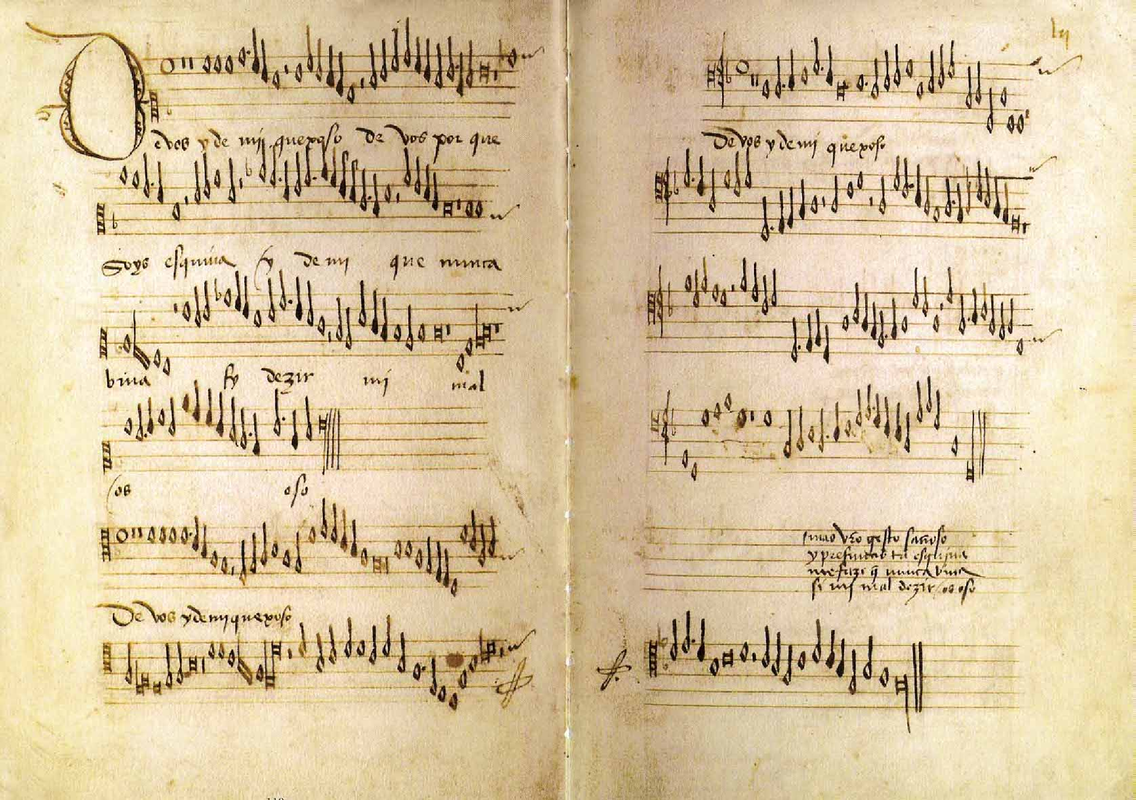 De vos y de mi quexoso de vos por que
soys esquiva y de mi que nunca
biva sy dezir mi mal
os oso
De vos y de mi quexoso
De vos y de mi quexoso
mas vro gesto sañoso
y esquiva
me faze q nunca biva
si mi mal dezir os oso